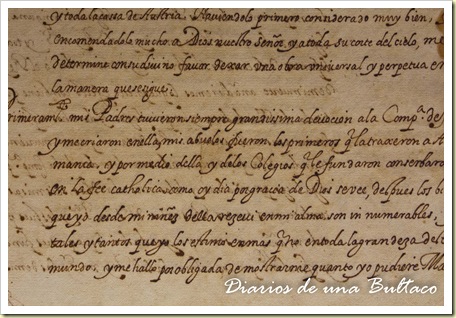 y toda la cassa de Austria. Haviendolo primero considerado muy bien,
Encomendadolo mucho a Dios nuestro señor, y a toda su corte del cielo, me
determine con su divino favor dexar una obra universal y perpetua en
la manera que se sigue
Primeram.te mis Padres tuvieron siempre grandissima devocion a la Comp.a de
y me criaron en ella, mis abuelos fueron los primeros q̃ la traxeron a
mania, y por medio della y de los Colegios q̃ le fundaron conservaron
en la fee catholica como oy dia por gracia de Dios se vee, despues los bi
que yo desde mi niñez della recevi en mi alma, son in numerables,
tales y tantos que yo los estimo en mas q̃ no en toda la grandeza del
mundo, y me hallo por obligada de mostrarme quanto yo pudiere Ma
Diarios de una Bultaco